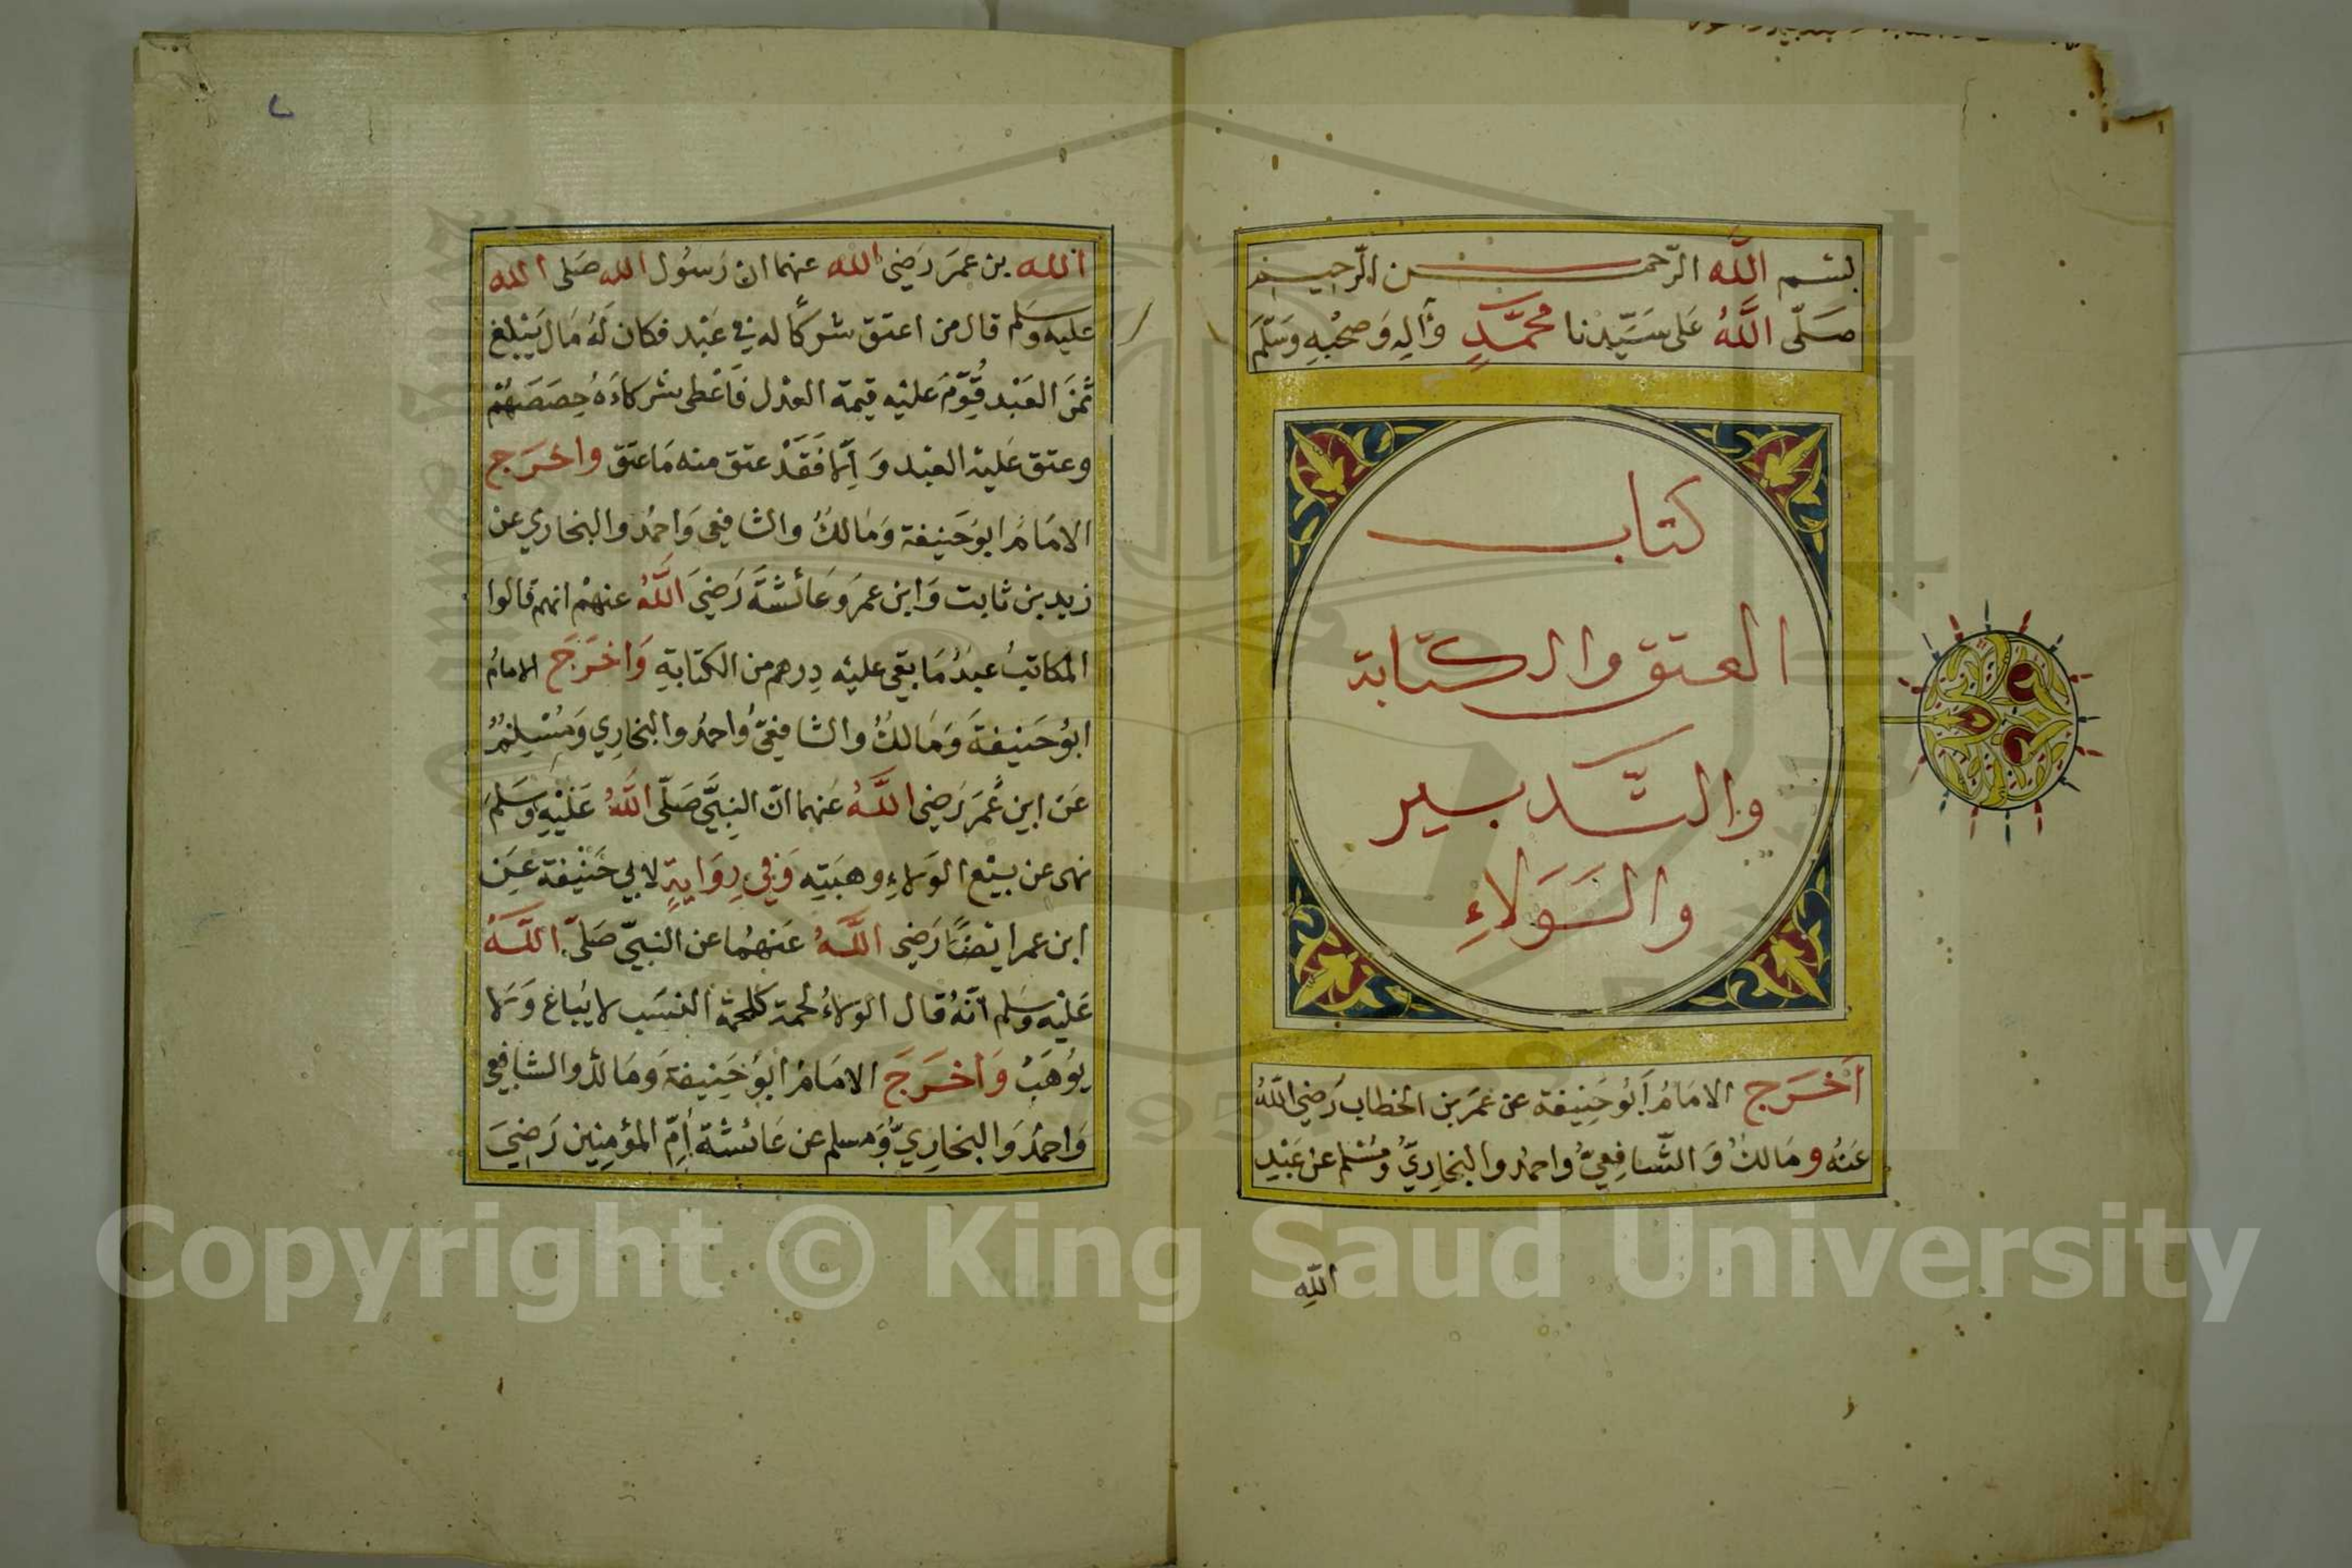 بسم الله الرّحمن الرّحيم
صَلّى اللّهُ عَلى سَيّدِنا محمَّدٍ وَآلِهِ وَصَحْبِهِ وَسَلَّمَ
كتاب
العتق والكتابة
والتّدبير
والوَلاءِ
اَخرَج الامَامُ اَبُو حَنِيفة عن عمَر بن الخطاب رَضِي اللّهُ
عَنهُ ومَالكُ وَالشّافِعيُّ واحمدُ والبخاريُّ ومُسْلم عَن عَبْدِ
اللّهِ
الله بن عمَرَ رَضِي الله عنهما ان رَسُول الله صَلى الله
عليه وسَلم قال من اعتق شركًا له في عَبْد فكان لَهُ مَال يَبْلغ
ثمَنَ العَبْد قُوِّمَ عَليْه قيمة العَدْل فَاَعْطى شركاءَهُ حِصَصَهُمْ
وعتق عَليْه العَبْد وَاِلّا فَقَدْ عتق منه مَا عتَق واخرَج
الامَامُ ابُو حَنِيفة وَمَالكُ والشافِعي وَاحمدُ والبخاري عن
زيد بن ثابت وَابن عمَر وَعَائشَةَ رَضِيَ اللّهُ عنهمْ انهم قالوا
المكاتبُ عَبدٌ مَا بقي عليْه دِرهم من الكتابةِ وَاخرَجَ الامامُ
ابُو حَنيفةَ وَمَالكُ والشافعيُّ وَاحمدُ والبخارِي وَمُسْلِمٌ
عَن ابن عُمَر رَضِي اللّهُ عَنهما انّ النبِيَّ صَلّى اللّهُ عَليْهِ وسَلمَ
نهى عن بيْع الوَلاءِ وهبَتِه وَفي رِوَايةٍ لابي حَنِيفة عَن
ابن عمر ايضًا رَضِي اللّهُ عَنهُما عن النبيّ صَلّى اللّهُ
عَليْه وسَلم انّهُ قال الولاءُ لحمة كلحمة النسَب لا يُباع وَلا
يوُهَبُ وَاَخرَجَ الامَامُ ابُو حَنِيفة وَمَالكُ والشافِعي
وَاحمدُ وَالبخارِيُّ وَمسلم عن عَائشة اُمِّ المؤمِنِين رَضِيَ
Copyright © King Saud University